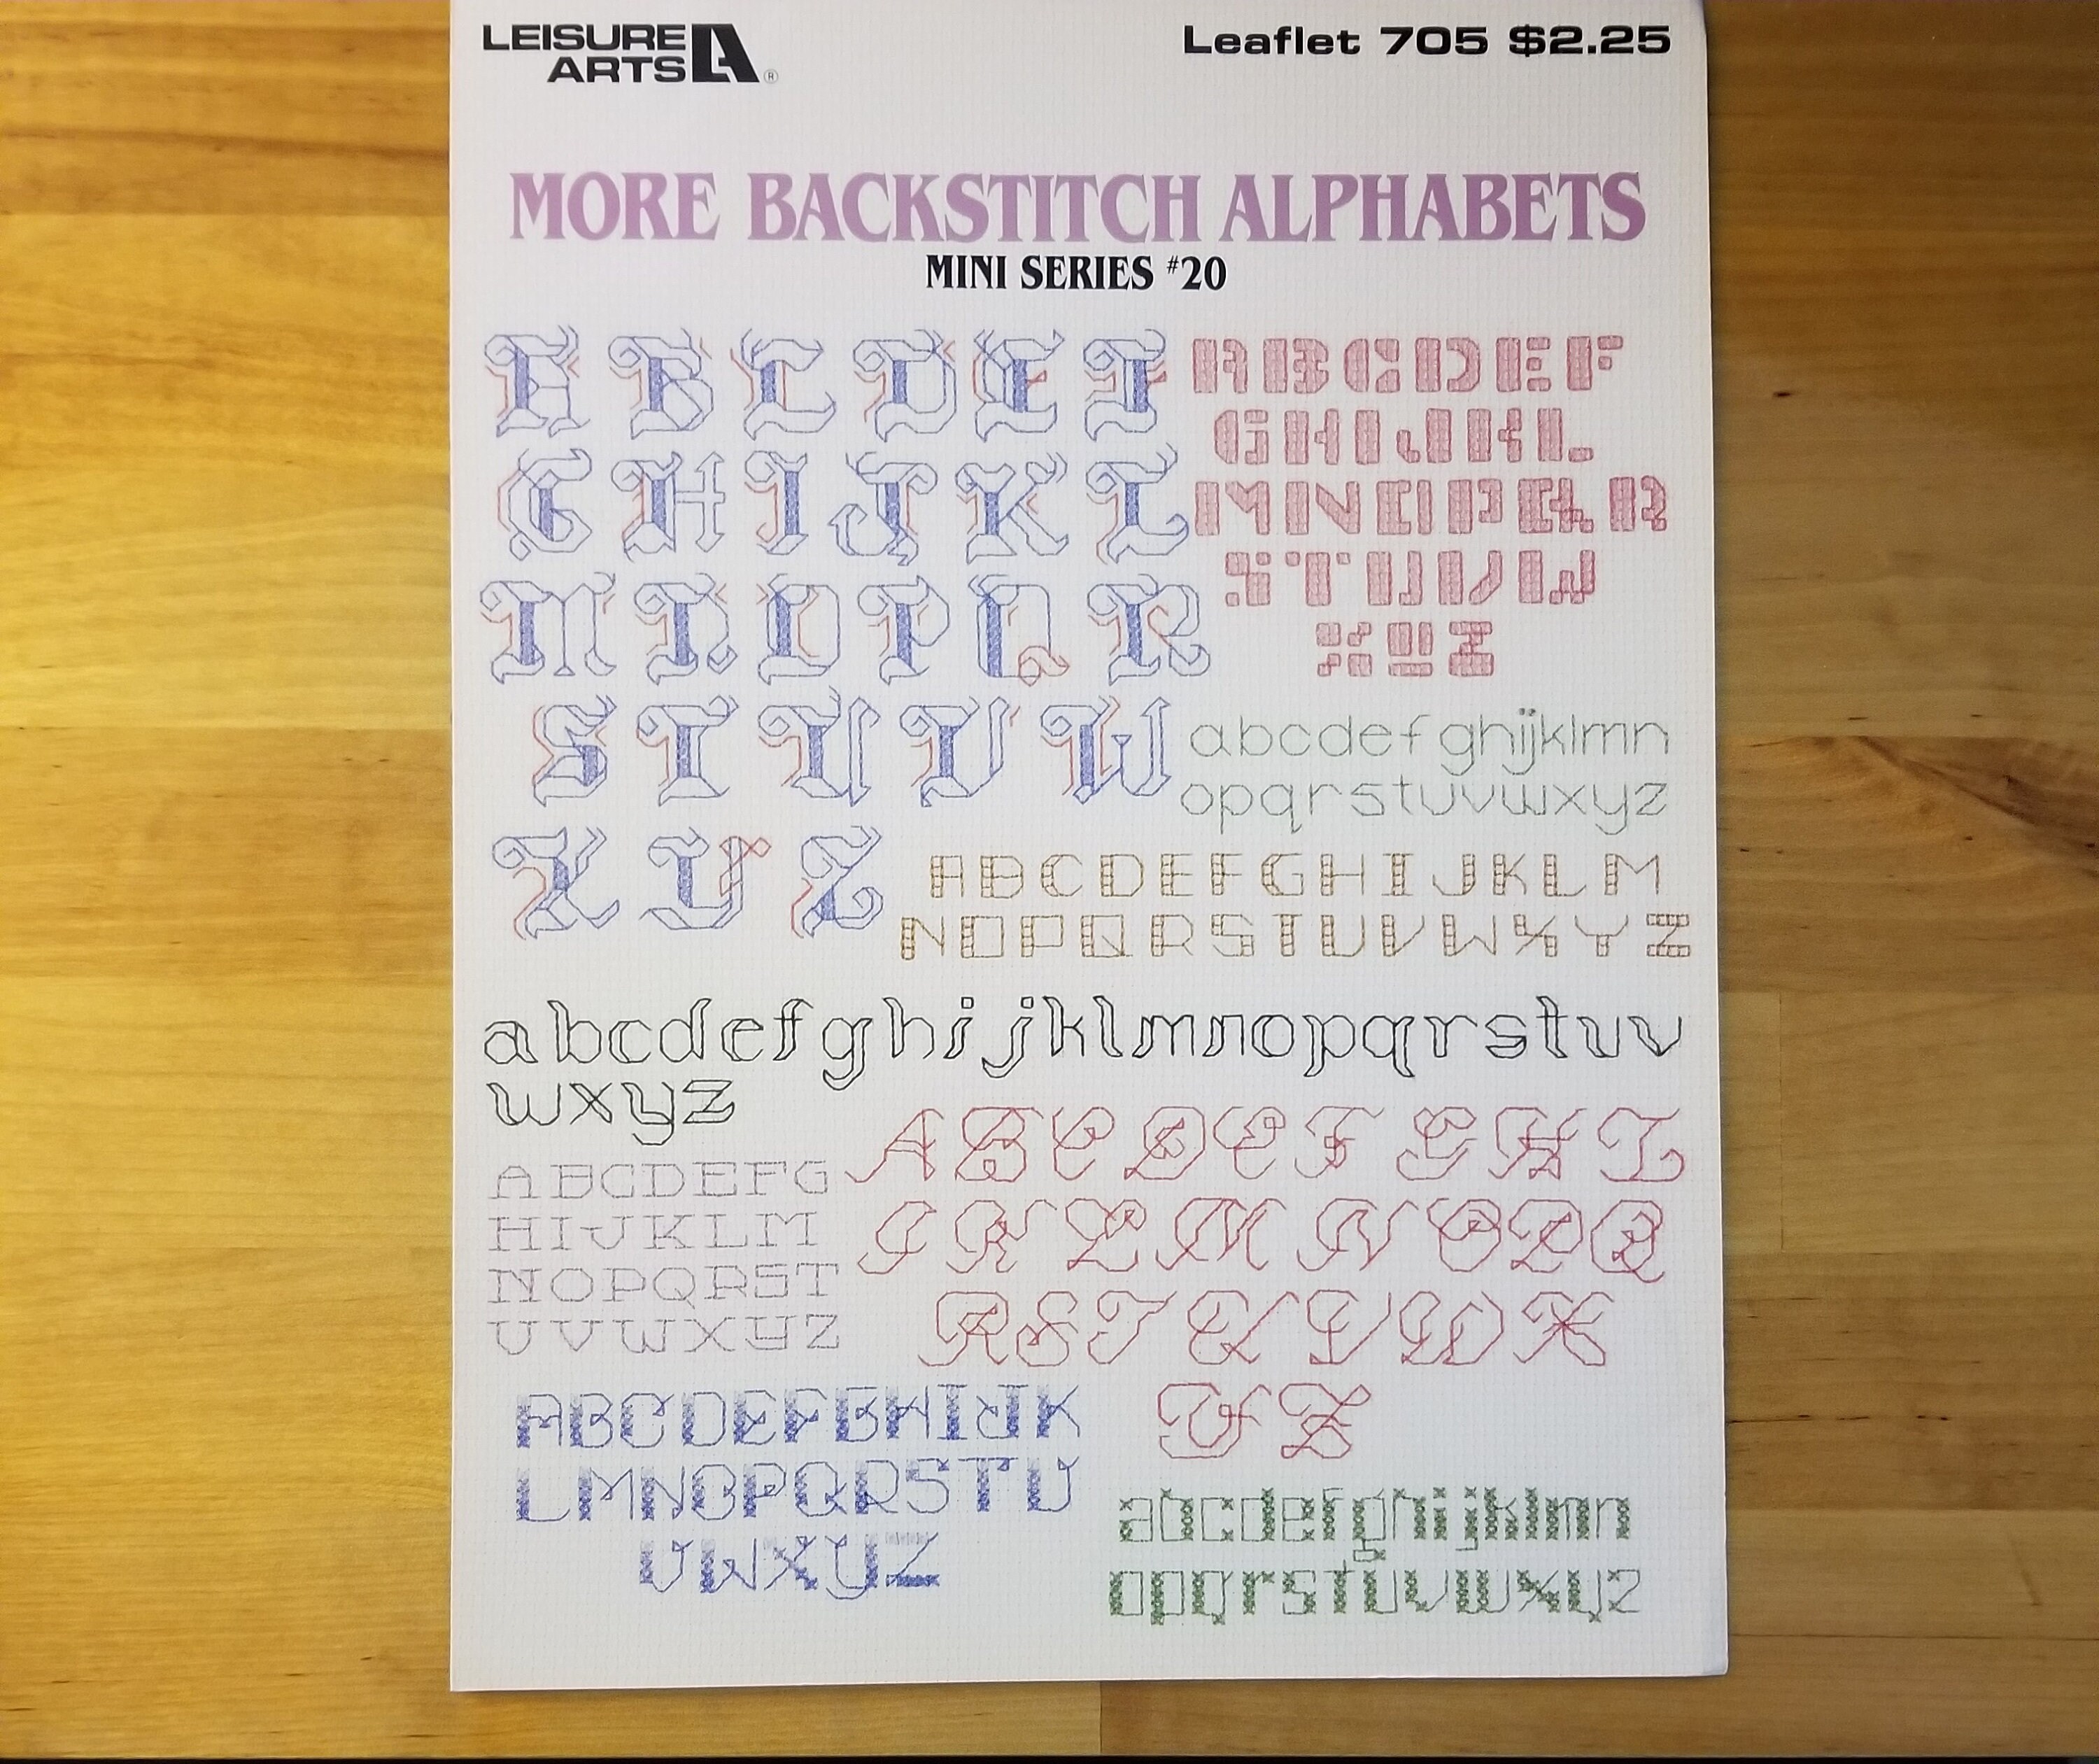 LEISURE
ARTS
®
Leaflet 705 $2.25
MORE BACKSTITCH ALPHABETS
MINI SERIES #20
A B C D E F
G H I J K L
M N O P Q R
S T U V W
X Y Z
A B C D E F
G H I J K L
M N O P Q R
S T U V W
X Y Z
a b c d e f g h i j k l m n
o p q r s t u v w x y z
A B C D E F G H I J K L M
N O P Q R S T U V W X Y Z
a b c d e f g h i j k l m n o p q r s t u v
w x y z
A B C D E F G
H I J K L M
N O P Q R S T
U V W X Y Z
A B C D E F G H I
J K L M N O P Q
R S T U V W X
Y Z
A B C D E F G H I J K
L M N O P Q R S T U
V W X Y Z
a b c d e f g h i j k l m n
o p q r s t u v w x y z